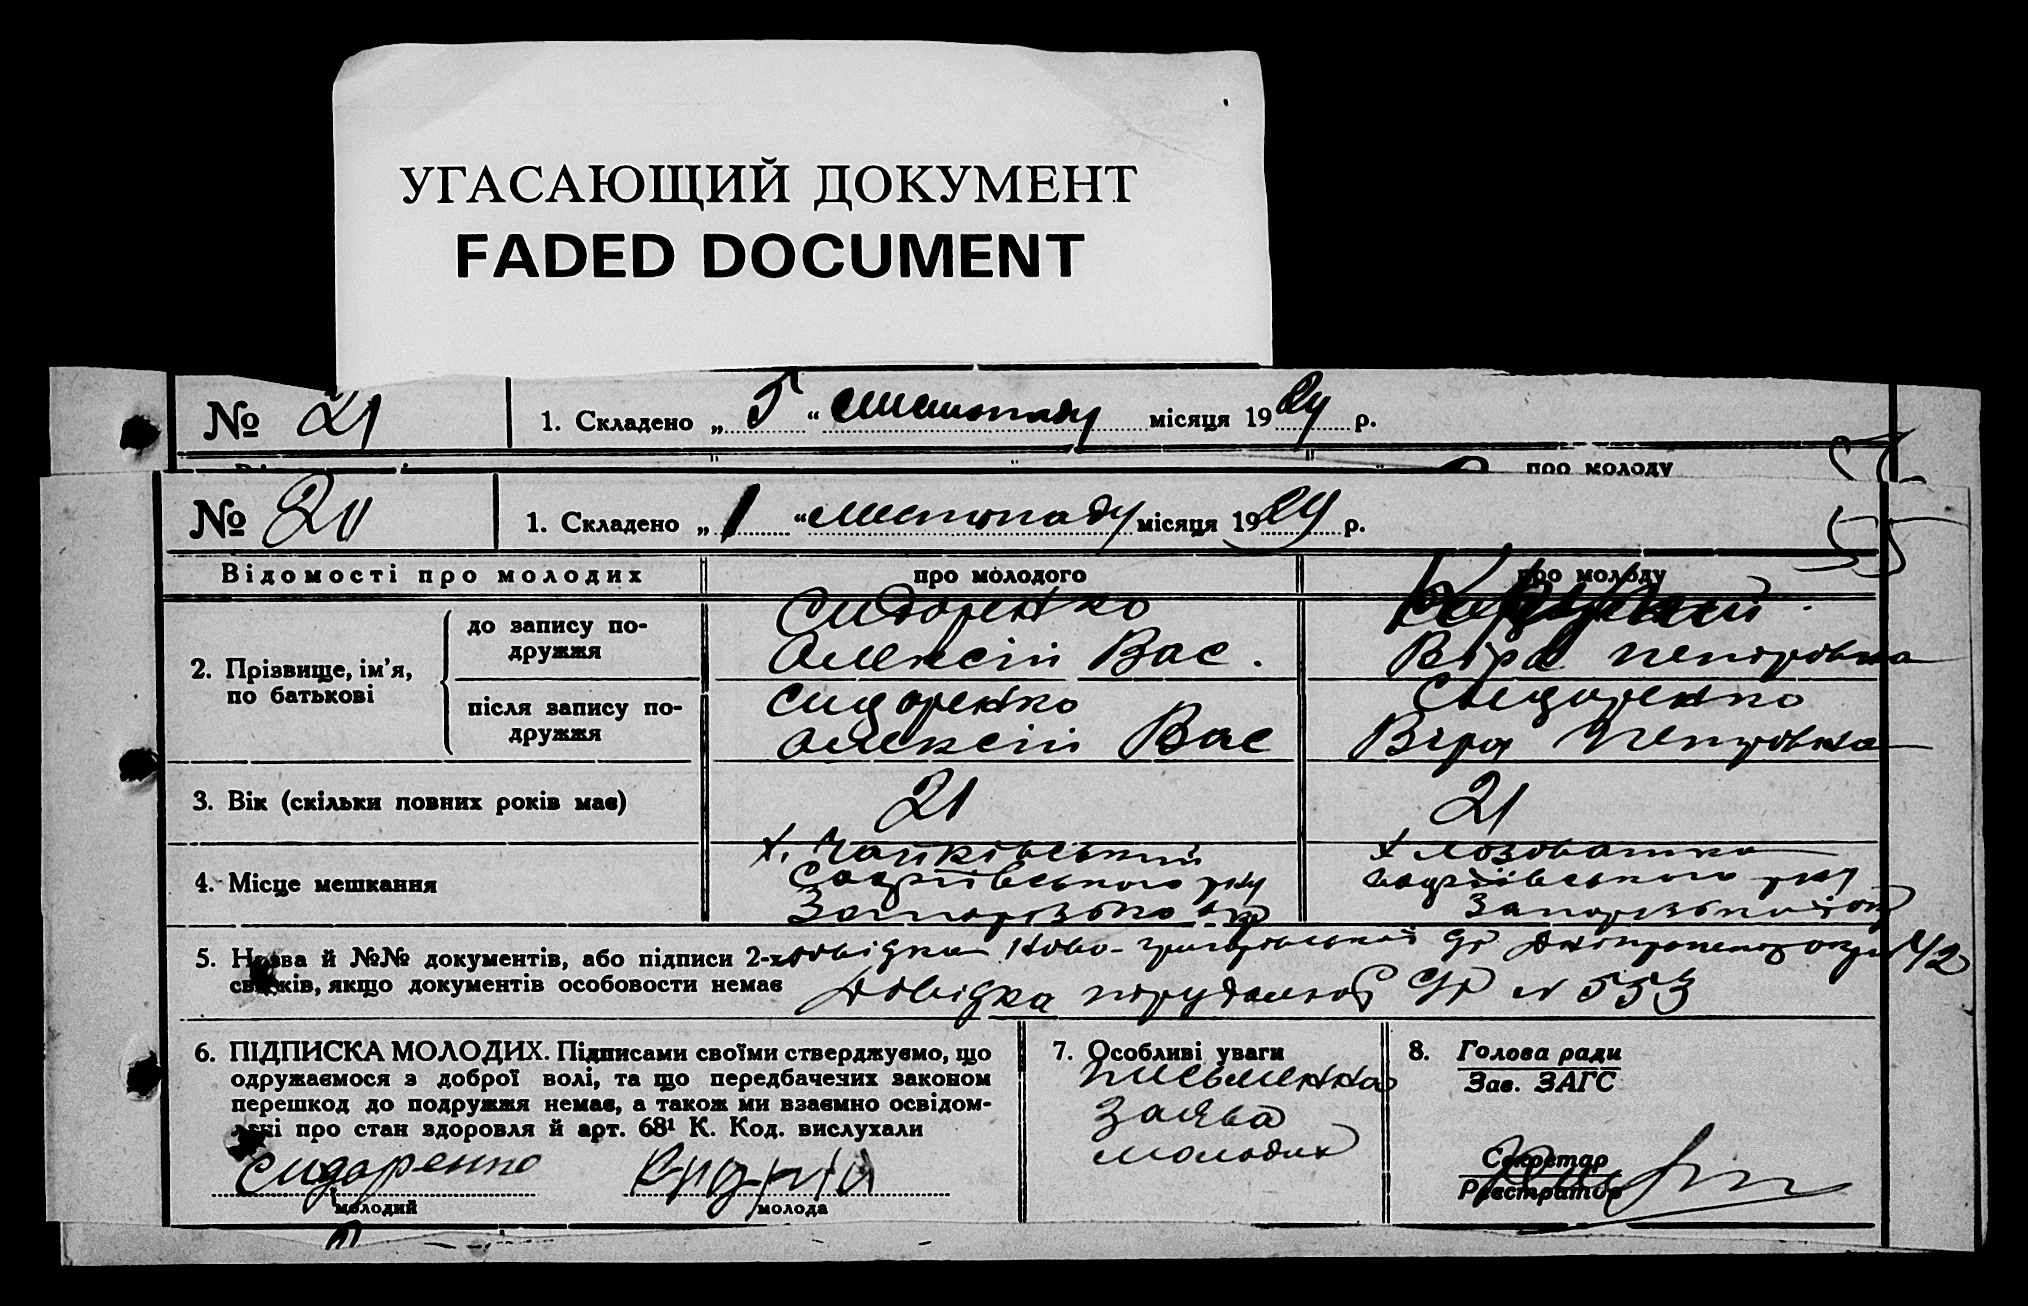 УГАСАЮЩИЙ ДОКУМЕНТ
FADED DOCUMENT
№ 21 1. Складено „ 5 “ листопаду місяця 1929 р.
про молоду
№ 20 1. Складено „ 1 “ листопаду місяця 1929 р.
55
Відомості про молодих про молодого про молоду
2. Прізвище, ім’я, по батькові
до запису по-
дружжя
Сидоренко
Олексій Вас.
Віра Петровна
після запису по-
дружжя
Сидоренко
Олексій Вас
Сидоренко
Віра Петровна
3. Вік (скільки повних років має) 21 21
4. Місце мешкання
х. Чайківський
Софіївського р-ну
Запорізько окр
х Лозоватка
Софіївського р-ну
Запорізької окр
5. Назва й №№ документів, або підписи 2-х довідка Ново-григорівської с/р окр 42
свідків, якщо документів особовости немає Довідка с/р N 553
6. ПІДПИСКА МОЛОДИХ. Підписами своїми стверджуємо, що
одружаємося з доброї волі, та що передбачених законом
перешкод до подружжя немає, а також ми взаємно освідом-
лені про стан здоровля й арт. 68¹ К. Код. вислухали
Сидоренко
молодий молода
7. Особливі уваги
письменна
заява
молодих
8. Голова ради
Зав. ЗАГС
Секретар
Реєстратор